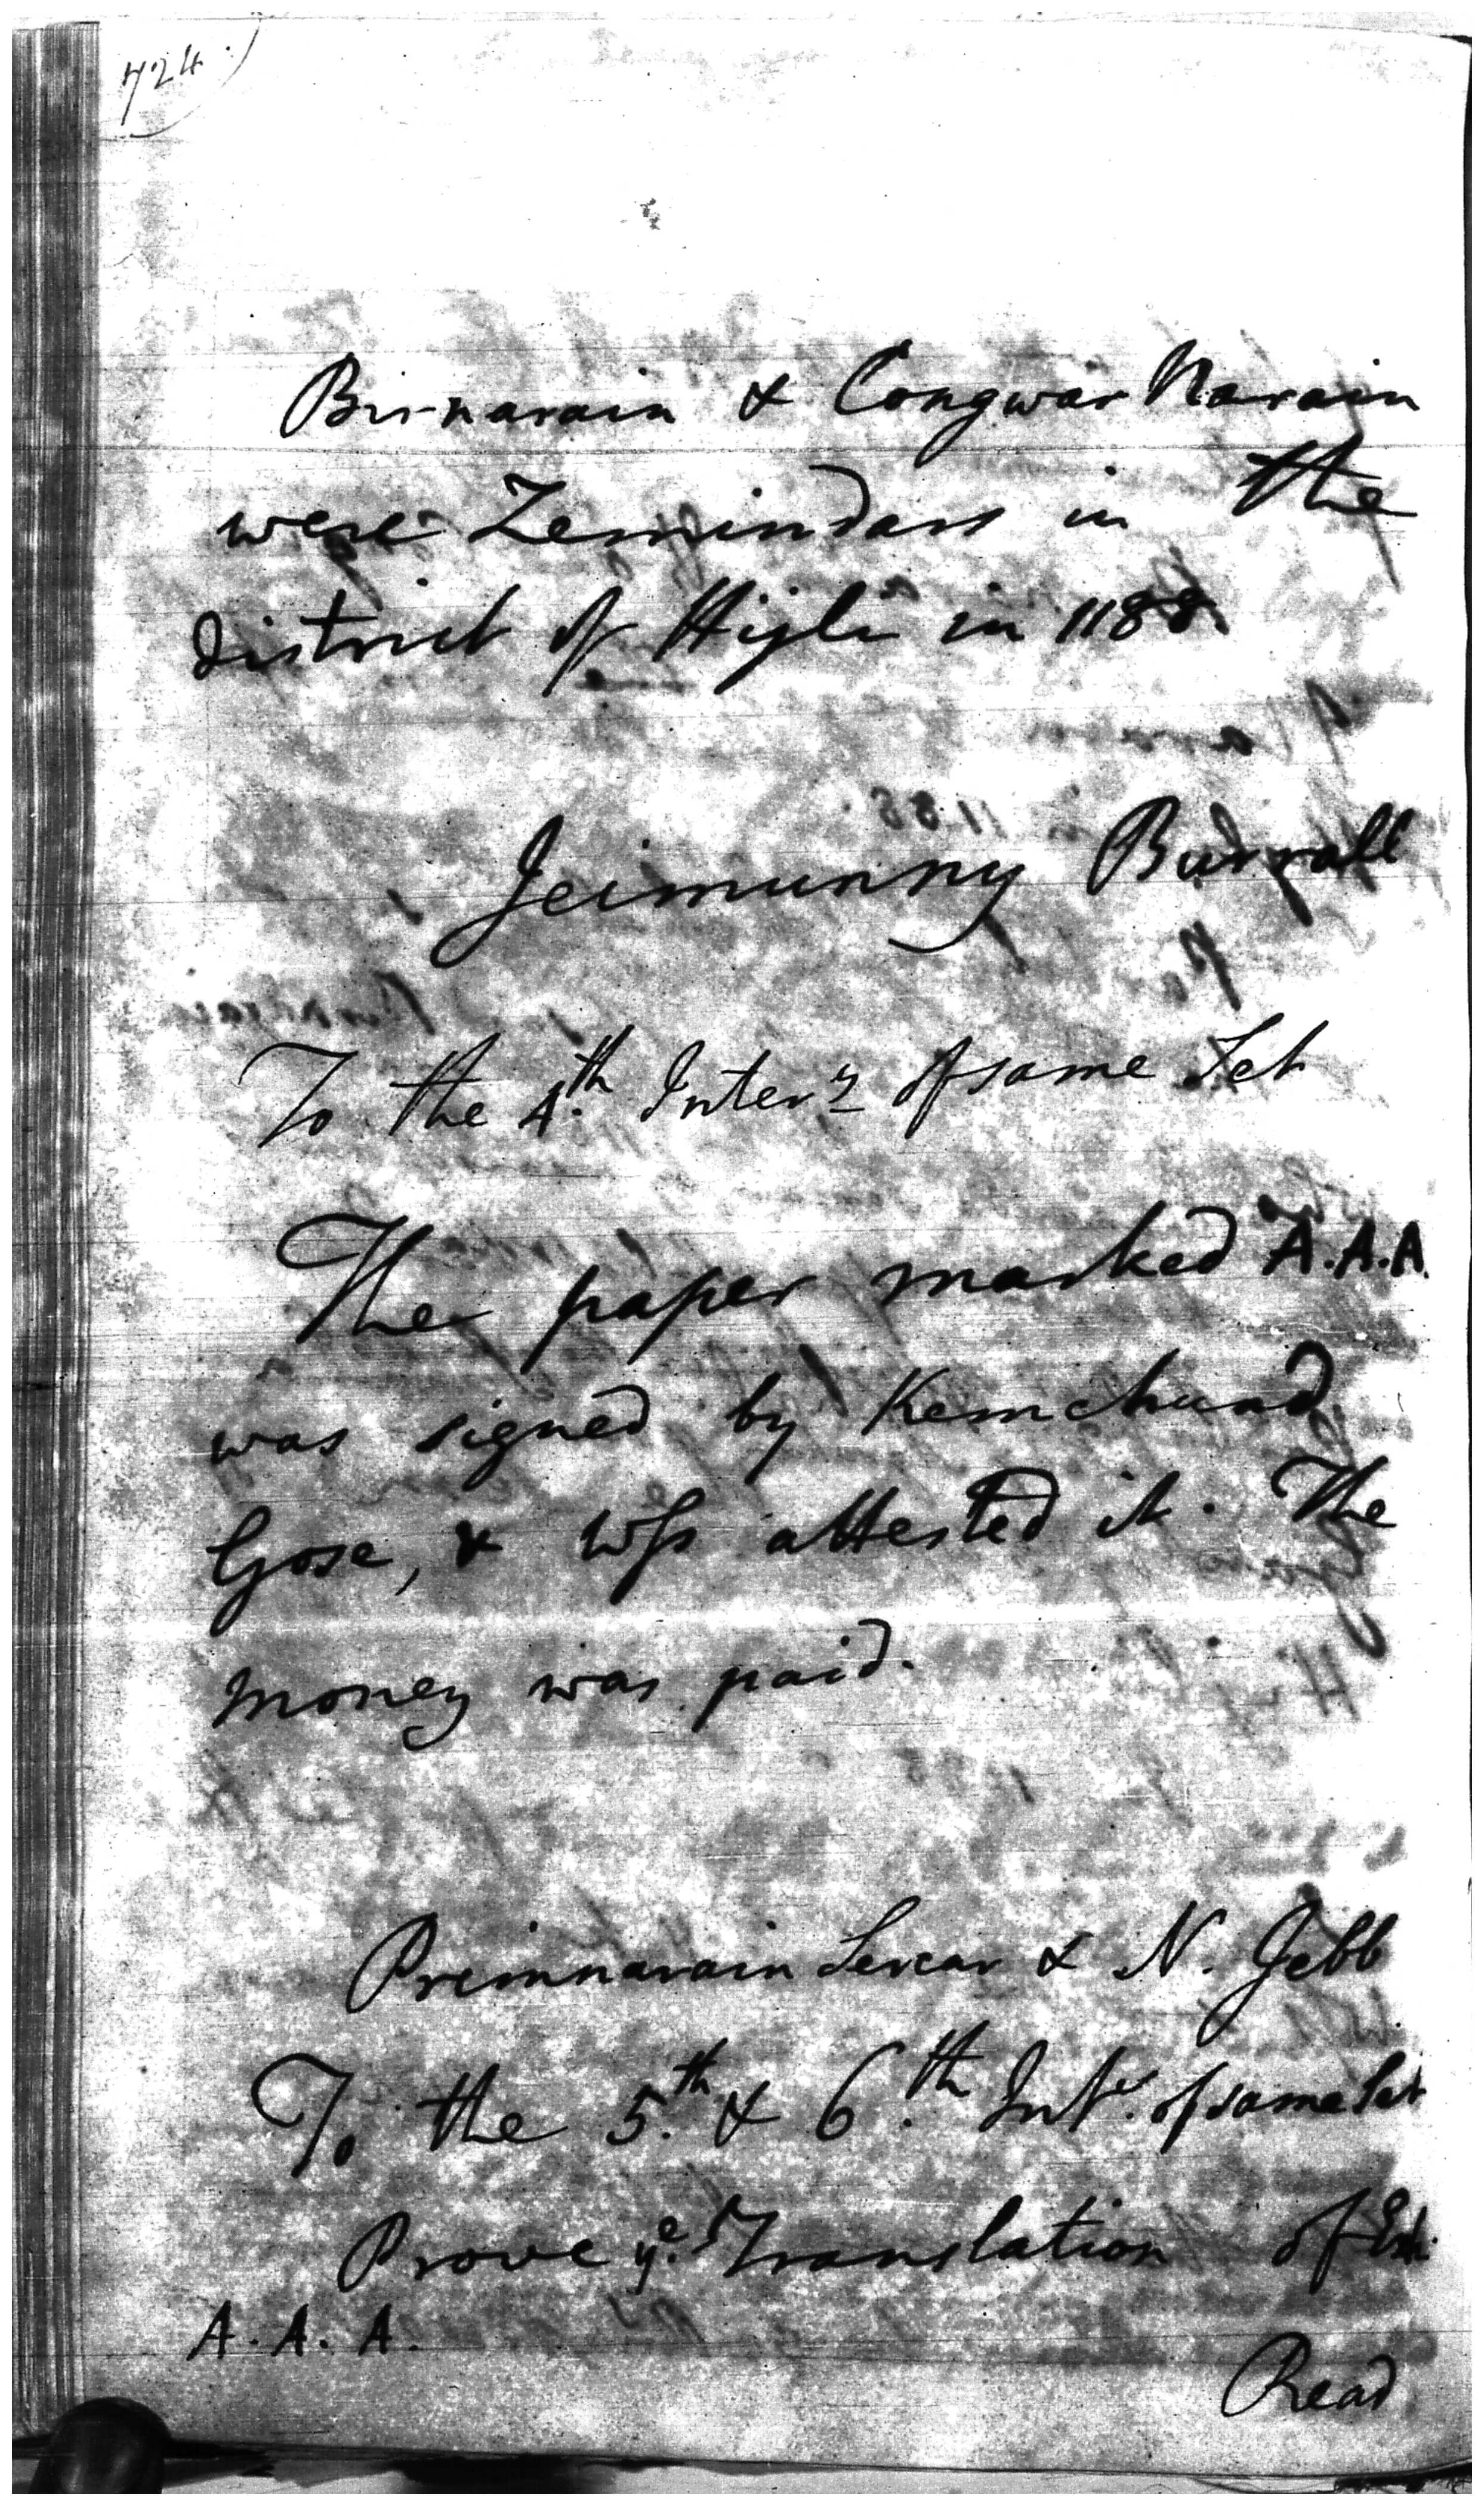 724.)
Birnarain & Congwar Narain
were Zemindars in the
district of Higli in 1188.
Jeimunny Burrall
To the 4.th Inter.y of same Set
The paper marked A.A.A.
was signed by Kemchund
Gose, & Wss attested it. The
money was paid.
Preimnarain Sercar & N. Jebb
To the 5.th & 6.th Intr. of same Set
Prove ye. Translation of Exh.
A. A. A.
Read